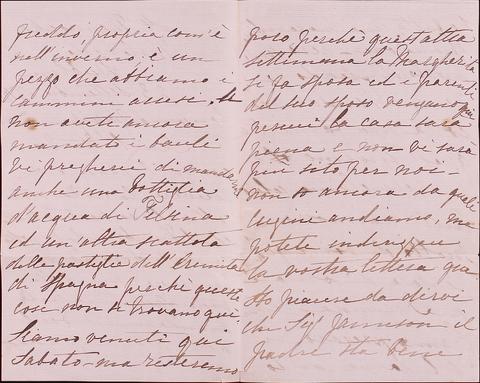 freddo, propria com'è
nell'inverno, è un
pezzo che abbiamo i
cammini accesi. Se
non avete ancora
mandato i bauli
vi pregherei di mandarmi
anche una bottiglia
d'acqua di Felsina
ed un'altra scattola
delle pastiglie dell'Eremita
di Spagna perchè queste
cose non si trovano qui
Siamo venuti qui
Sabato - ma resteremo
poco perchè quest'altra
settimana la Margherita
si fa sposa ed i parenti
del suo sposo vengono qui
la casa sarà
piena e non vi sarà
più sito per noi -
non so ancora da quali
cugini andiamo, ma
potete indirizzare
la vostra lettera qua
Ho piacere da dirvi
che Sig. Jameson il
padre sta bene